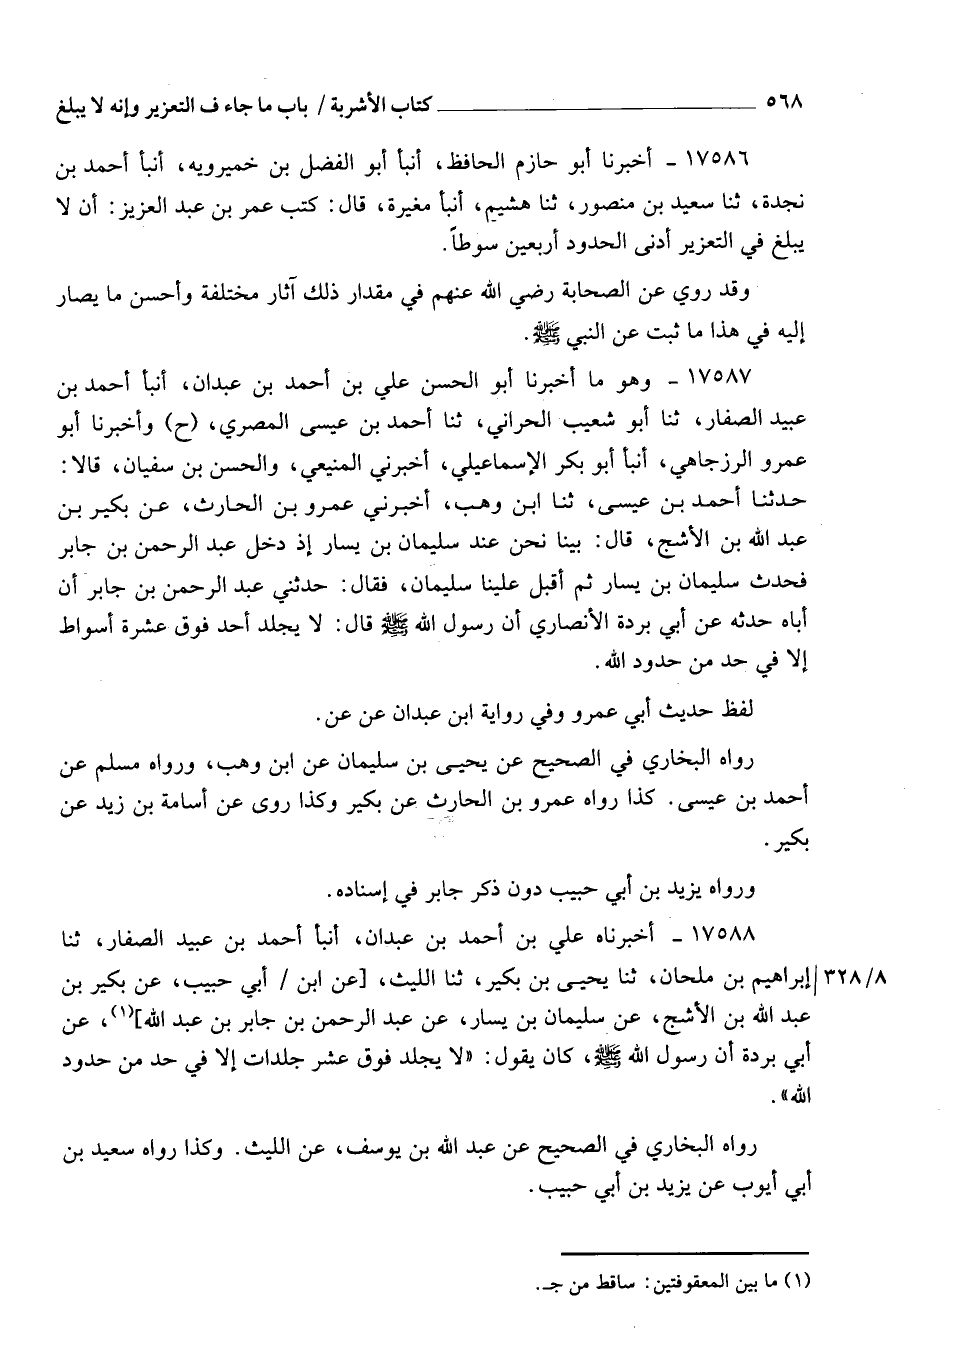 ٥٦٨ ــــــــــــــــــــ كتاب الأشربة / باب ما جاء ف التعزير وإنه لا يبلغ
١٧٥٨٦ - أخبرنا أبو حازم الحافظ، أنبأ أبو الفضل بن خميرويه، أنبأ أحمد بن
نجدة، ثنا سعيد بن منصور، ثنا هشيم، أنبأ مغيرة، قال: كتب عمر بن عبد العزيز: أن لا
يبلغ في التعزير أدنى الحدود أربعين سوطاً.
وقد روي عن الصحابة رضي الله عنهم في مقدار ذلك آثار مختلفة وأحسن ما يصار
إليه في هذا ما ثبت عن النبي ﷺ.
١٧٥٨٧ - وهو ما أخبرنا أبو الحسن علي بن أحمد بن عبدان، أنبأ أحمد بن
عبيد الصفار، ثنا أبو شعيب الحراني، ثنا أحمد بن عيسى المصري، (ح) وأخبرنا أبو
عمرو الرزجاهي، أنبأ أبو بكر الإسماعيلي، أخبرني المنيعي، والحسن بن سفيان، قالا:
حدثنا أحمد بن عيسى، ثنا ابن وهب، أخبرني عمرو بن الحارث، عن بكير بن
عبد الله بن الأشج، قال: بينا نحن عند سليمان بن يسار إذ دخل عبد الرحمن بن جابر
فحدث سليمان بن يسار ثم أقبل علينا سليمان، فقال: حدثني عبد الرحمن بن جابر أن
أباه حدثه عن أبي بردة الأنصاري أن رسول الله ﷺ قال: لا يجلد أحد فوق عشرة أسواط
إلا في حد من حدود الله.
لفظ حديث أبي عمرو وفي رواية ابن عبدان عن عن.
رواه البخاري في الصحيح عن يحيى بن سليمان عن ابن وهب، ورواه مسلم عن
أحمد بن عيسى. كذا رواه عمرو بن الحارث عن بكير وكذا روى عن أسامة بن زيد عن
بكير.
ورواه يزيد بن أبي حبيب دون ذكر جابر في إسناده.
١٧٥٨٨ - أخبرناه علي بن أحمد بن عبدان، أنبأ أحمد بن عبيد الصفار، ثنا
٣٢٨/٨ إبراهيم بن ملحان، ثنا يحيى بن بكير، ثنا الليث، [عن ابن / أبي حبيب، عن بكير بن
عبد الله بن الأشج، عن سليمان بن يسار، عن عبد الرحمن بن جابر بن عبد الله](١)، عن
أبي بردة أن رسول الله ﷺ، كان يقول: «لا يجلد فوق عشر جلدات إلا في حد من حدود
الله».
رواه البخاري في الصحيح عن عبد الله بن يوسف، عن الليث. وكذا رواه سعيد بن
أبي أيوب عن يزيد بن أبي حبيب.
(١) ما بين المعقوفتين: ساقط من جـ.